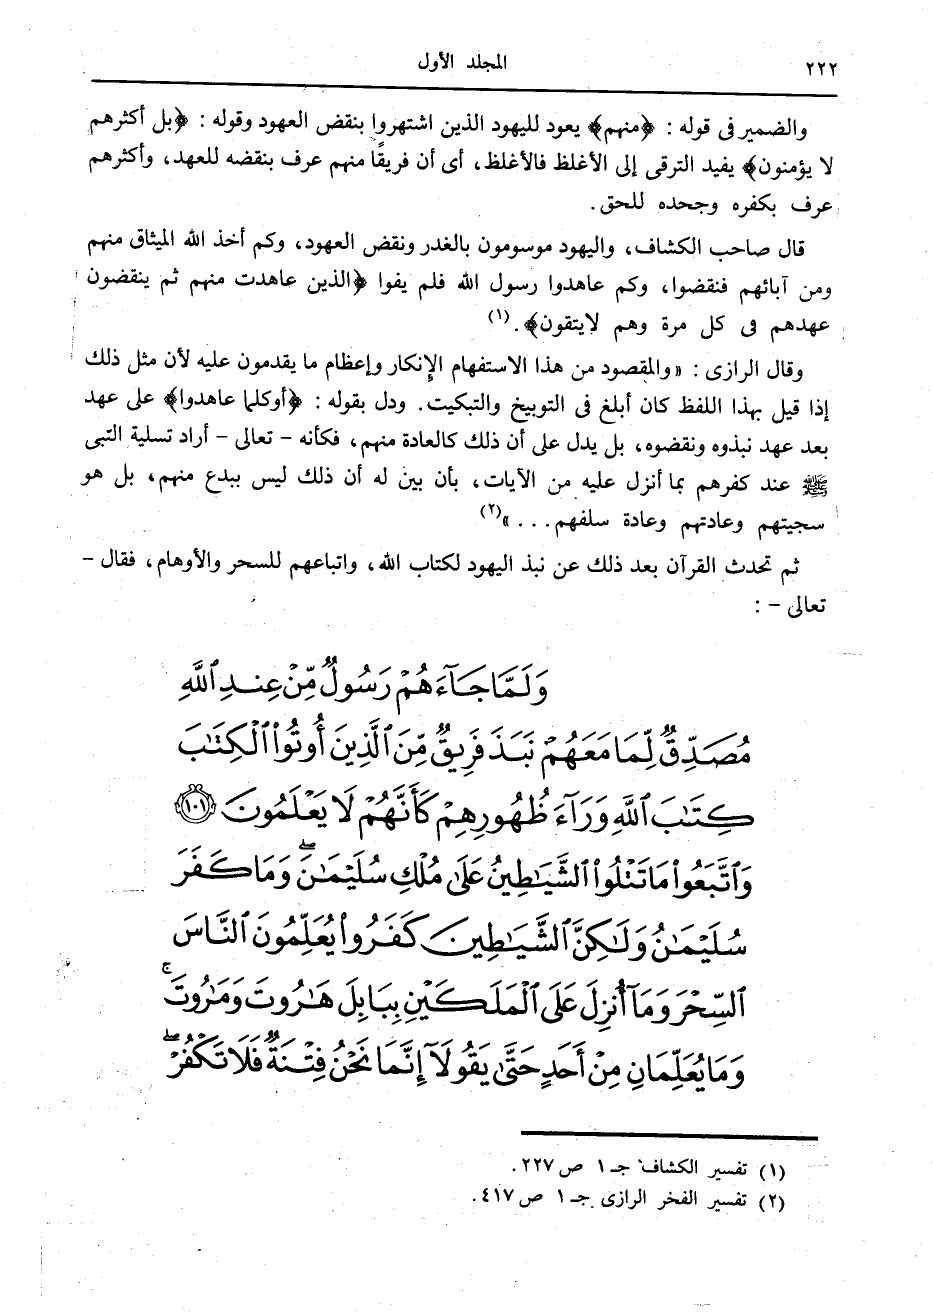 ٢٢٢ المجلد الأول
والضمير فى قوله : ﴿منهم﴾ يعود لليهود الذين اشتهروا بنقض العهود وقوله : ﴿بل أكثرهم
لا يؤمنون﴾ يفيد الترقى إلى الأغلظ فالأغلظ، أى أن فريقًا منهم عرف بنقضه للعهد، وأكثرهم
عرف بكفره وجحده للحق.
قال صاحب الكشاف، واليهود موسومون بالغدر ونقض العهود، وكم أخذ الله الميثاق منهم
ومن آبائهم فنقضوا، وكم عاهدوا رسول الله فلم يفوا ﴿الذين عاهدت منهم ثم ينقضون
عهدهم فى كل مرة وهم لايتقون﴾.(١)
وقال الرازى : «والمقصود من هذا الاستفهام الإنكار وإعظام ما يقدمون عليه لأن مثل ذلك
إذا قيل بهذا اللفظ كان أبلغ فى التوبيخ والتبكيت. ودل بقوله : ﴿أوكلما عاهدوا﴾ على عهد
بعد عهد نبذوه ونقضوه، بل يدل على أن ذلك كالعادة منهم، فكأنه - تعالى - أراد تسلية النبى
ﷺ عند كفرهم بما أنزل عليه من الآيات، بأن بين له أن ذلك ليس ببدع منهم، بل هو
سجيتهم وعادتهم وعادة سلفهم...»(٢)
ثم تحدث القرآن بعد ذلك عن نبذ اليهود لكتاب الله، واتباعهم للسحر والأوهام، فقال -
تعالى - :
وَلَمَّا جَآءَهُمْ رَسُولٌ مِّنْ عِندِ ٱللَّهِ
مُصَدِّقٌ لِّمَا مَعَهُمْ نَبَذَ فَرِيقٌ مِّنَ ٱلَّذِينَ أُوتُوا۟ ٱلْكِتَٰبَ
كِتَٰبَ ٱللَّهِ وَرَآءَ ظُهُورِهِمْ كَأَنَّهُمْ لَا يَعْلَمُونَ ١٠١
وَٱتَّبَعُوا۟ مَا تَتْلُوا۟ ٱلشَّيَٰطِينُ عَلَىٰ مُلْكِ سُلَيْمَٰنَ ۖ وَمَا كَفَرَ
سُلَيْمَٰنُ وَلَٰكِنَّ ٱلشَّيَٰطِينَ كَفَرُوا۟ يُعَلِّمُونَ ٱلنَّاسَ
ٱلسِّحْرَ وَمَآ أُنزِلَ عَلَى ٱلْمَلَكَيْنِ بِبَابِلَ هَٰرُوتَ وَمَٰرُوتَ ۚ
وَمَا يُعَلِّمَانِ مِنْ أَحَدٍ حَتَّىٰ يَقُولَآ إِنَّمَا نَحْنُ فِتْنَةٌ فَلَا تَكْفُرْ ۖ
(١) تفسير الكشاف جـ ١ ص ٢٢٧.
(٢) تفسير الفخر الرازى جـ ١ ص ٤١٧.